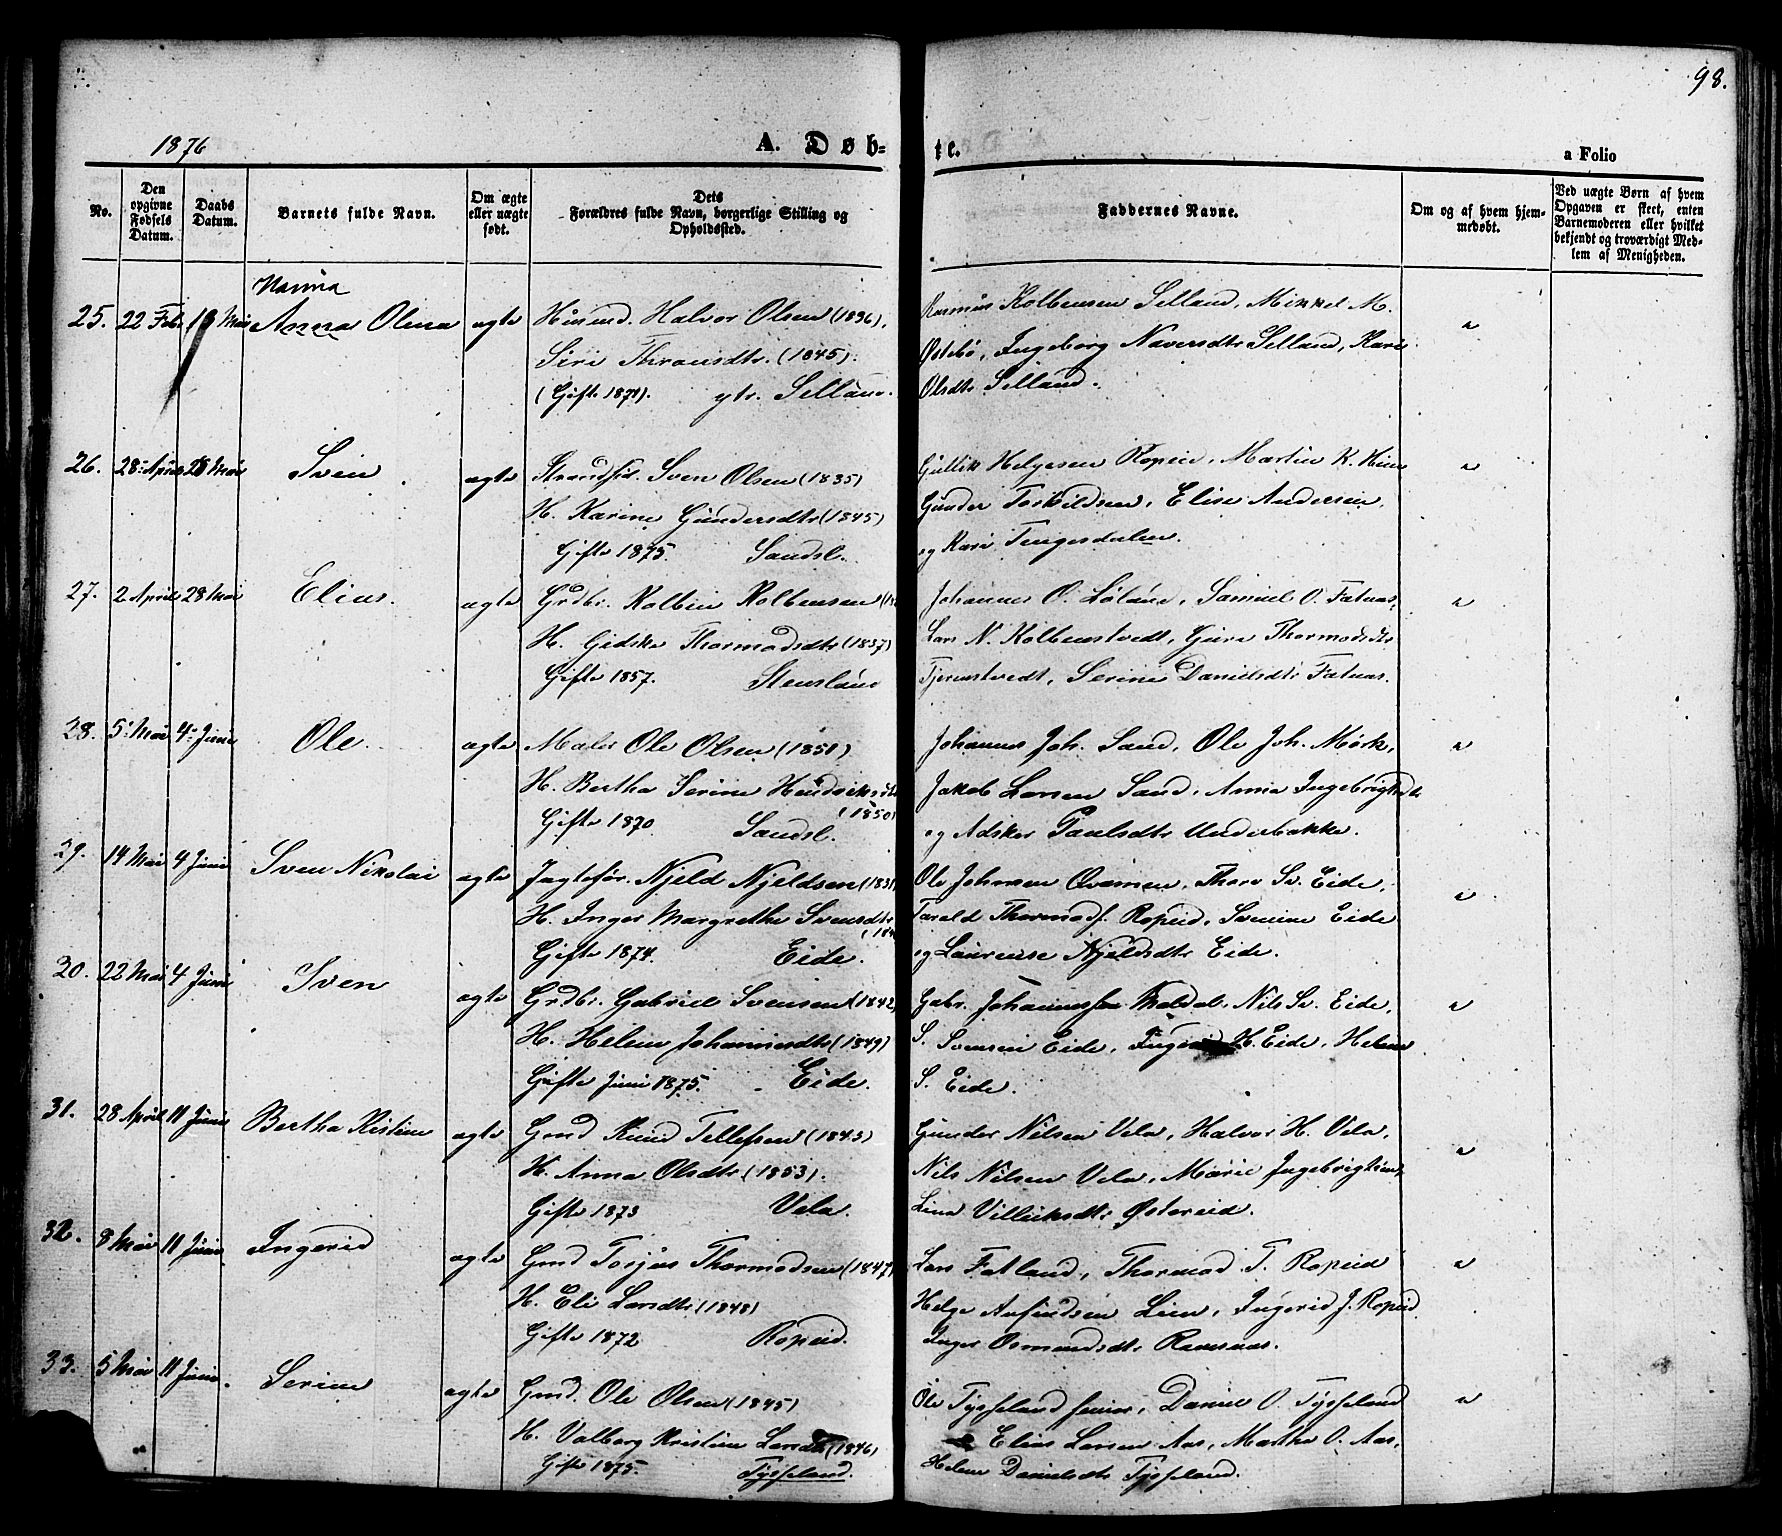 98.
1876
A. Døb-
te.
a Folio
No.
Den opgivne Fødsels Datum.
Daabs Datum.
Barnets fulde Navn.
Om ægte eller uægte født.
Dets Forældres fulde Navn, borgerlige Stilling og Opholdssted.
Faddernes Navne.
Om og af hvem hjemmedøbt.
Ved uægte Børn af hvem Opgaven er skeet, enten Barnemoderen eller hvilket bekjendt og troværdigt Medlem af Menigheden.
Hanna
25. 22 Feb. Mai Anna Olena ægte Husmd. Halvor Olsen (1836). Rasmus Kolbensen Selland, Mikkel M. "
Siri Thronsdtr. (1845). Østebø, Ingeborg Naversdtr Selland, Kari
(Gifte 1871). ytr. Selland. Olsdtr Selland.
26. 28 April 28 Mai Sven ægte Strandsid. Sven Olsen (1835) Gullik Helgesen Ropeid, Martin K. "
H. Karine Gundersdtr (1845) Gunder Torkildsen, Elise Andersen
Gifte 1875. Sandsl. og Kari Tengesdalen.
27. 2 April 28 Mai Elias. ægte Grdbr. Kolbein Kolbensen Johannes O. Løland, Samuel O. Fatnæs, "
H. Gidske Thormodsdtr (1837) Lars N. Kolbenstvedt, Guro Thormodsdtr
Gifte 1857. Stensland Tjerenstvedt, Serine Danielsdtr Fatnæs.
28. 5 Mai 4 Juni Ole. ægte Maler Ole Olsen (1851) Johannes Joh. Sand, Ole Joh. Mørk, "
H. Bertha Serine Hendriksdtr Jakob Larsen Sand, Anna Ingebrigtsdtr
(1850)
Gifte 1870. Sandsl. og Adskor Paulsdtr Underbakke.
29. 14 Mai 4 Juni Sven Nikolai ægte Jagtefør. Njeld Njeldsen (1831) Ole Johnsen Ovamen, Thore Sv. Eide, "
H. Inger Margrethe Svensdtr Tarald Thormods. Ropeid, Svenine Eide
Gifte 1874. Eide. og Laurense Njeldsdtr Eide.
30. 22 Mai 4 Juni Sven ægte Grdbr. Gabriel Svensen (1842) Gabr. Johannessen Meldal, Nils Sv. Eide, "
H. Helene Johannesdtr (1849) S. Svensen Eide, H. Eide, Helene
Gifte Juni 1875. Eide. S. Eide.
31. 28 April 11 Juni Bertha Kristine ægte Gmd Knud Tellefsen (1843) Gunder Nilsen Vela, Halvor H. Vela, "
H. Anna Olsdtr (1853). Nils Nilsen Vela, Marie Ingebrigtsen,
Gifte 1873 Vela. Lina Villiksdtr Østereid.
32. 8 Mai 11 Juni Ingerid ægte Gmd Torjus Thormodsen (1847) Lars Fatland, Thormod T. Ropeid "
H. Eli Larsdtr (1848) Helge Aufindsen Lien, Ingerid J. Ropeid
Gifte 1872 Ropeid. Inger Osmundsdtr Ramsnæs.
33. 5 Mai 11 Juni Serine ægte Gmd. Ole Olsen (1845) Ole Tysseland senior, Daniel O. Tysseland "
H. Valborg Kristine Larsdtr (1846) Elias Larsen Aas, Martha O. Aas,
Gifte 1875. Tysseland. Helene Danielsdtr Tysseland.